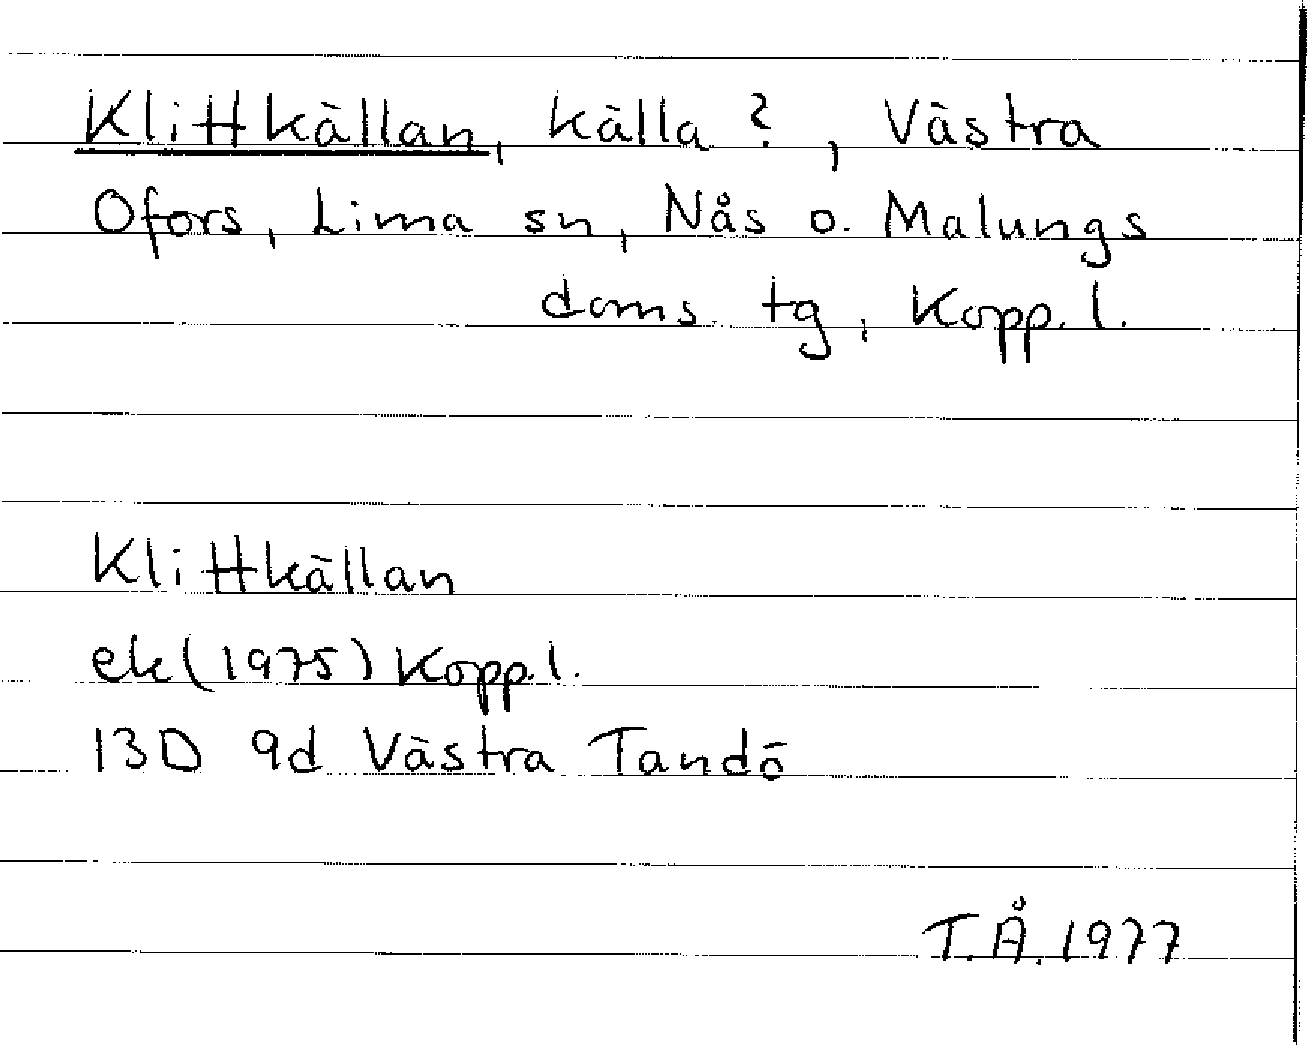 Klittkällan, källa ?, Västra
Ofors, Lima sn, Nås o. Malungs
doms tg, Kopp. l.
Klittkällan
ek (1975) Kopp. l.
13D 9d Västra Tandö
T.Å. 1977